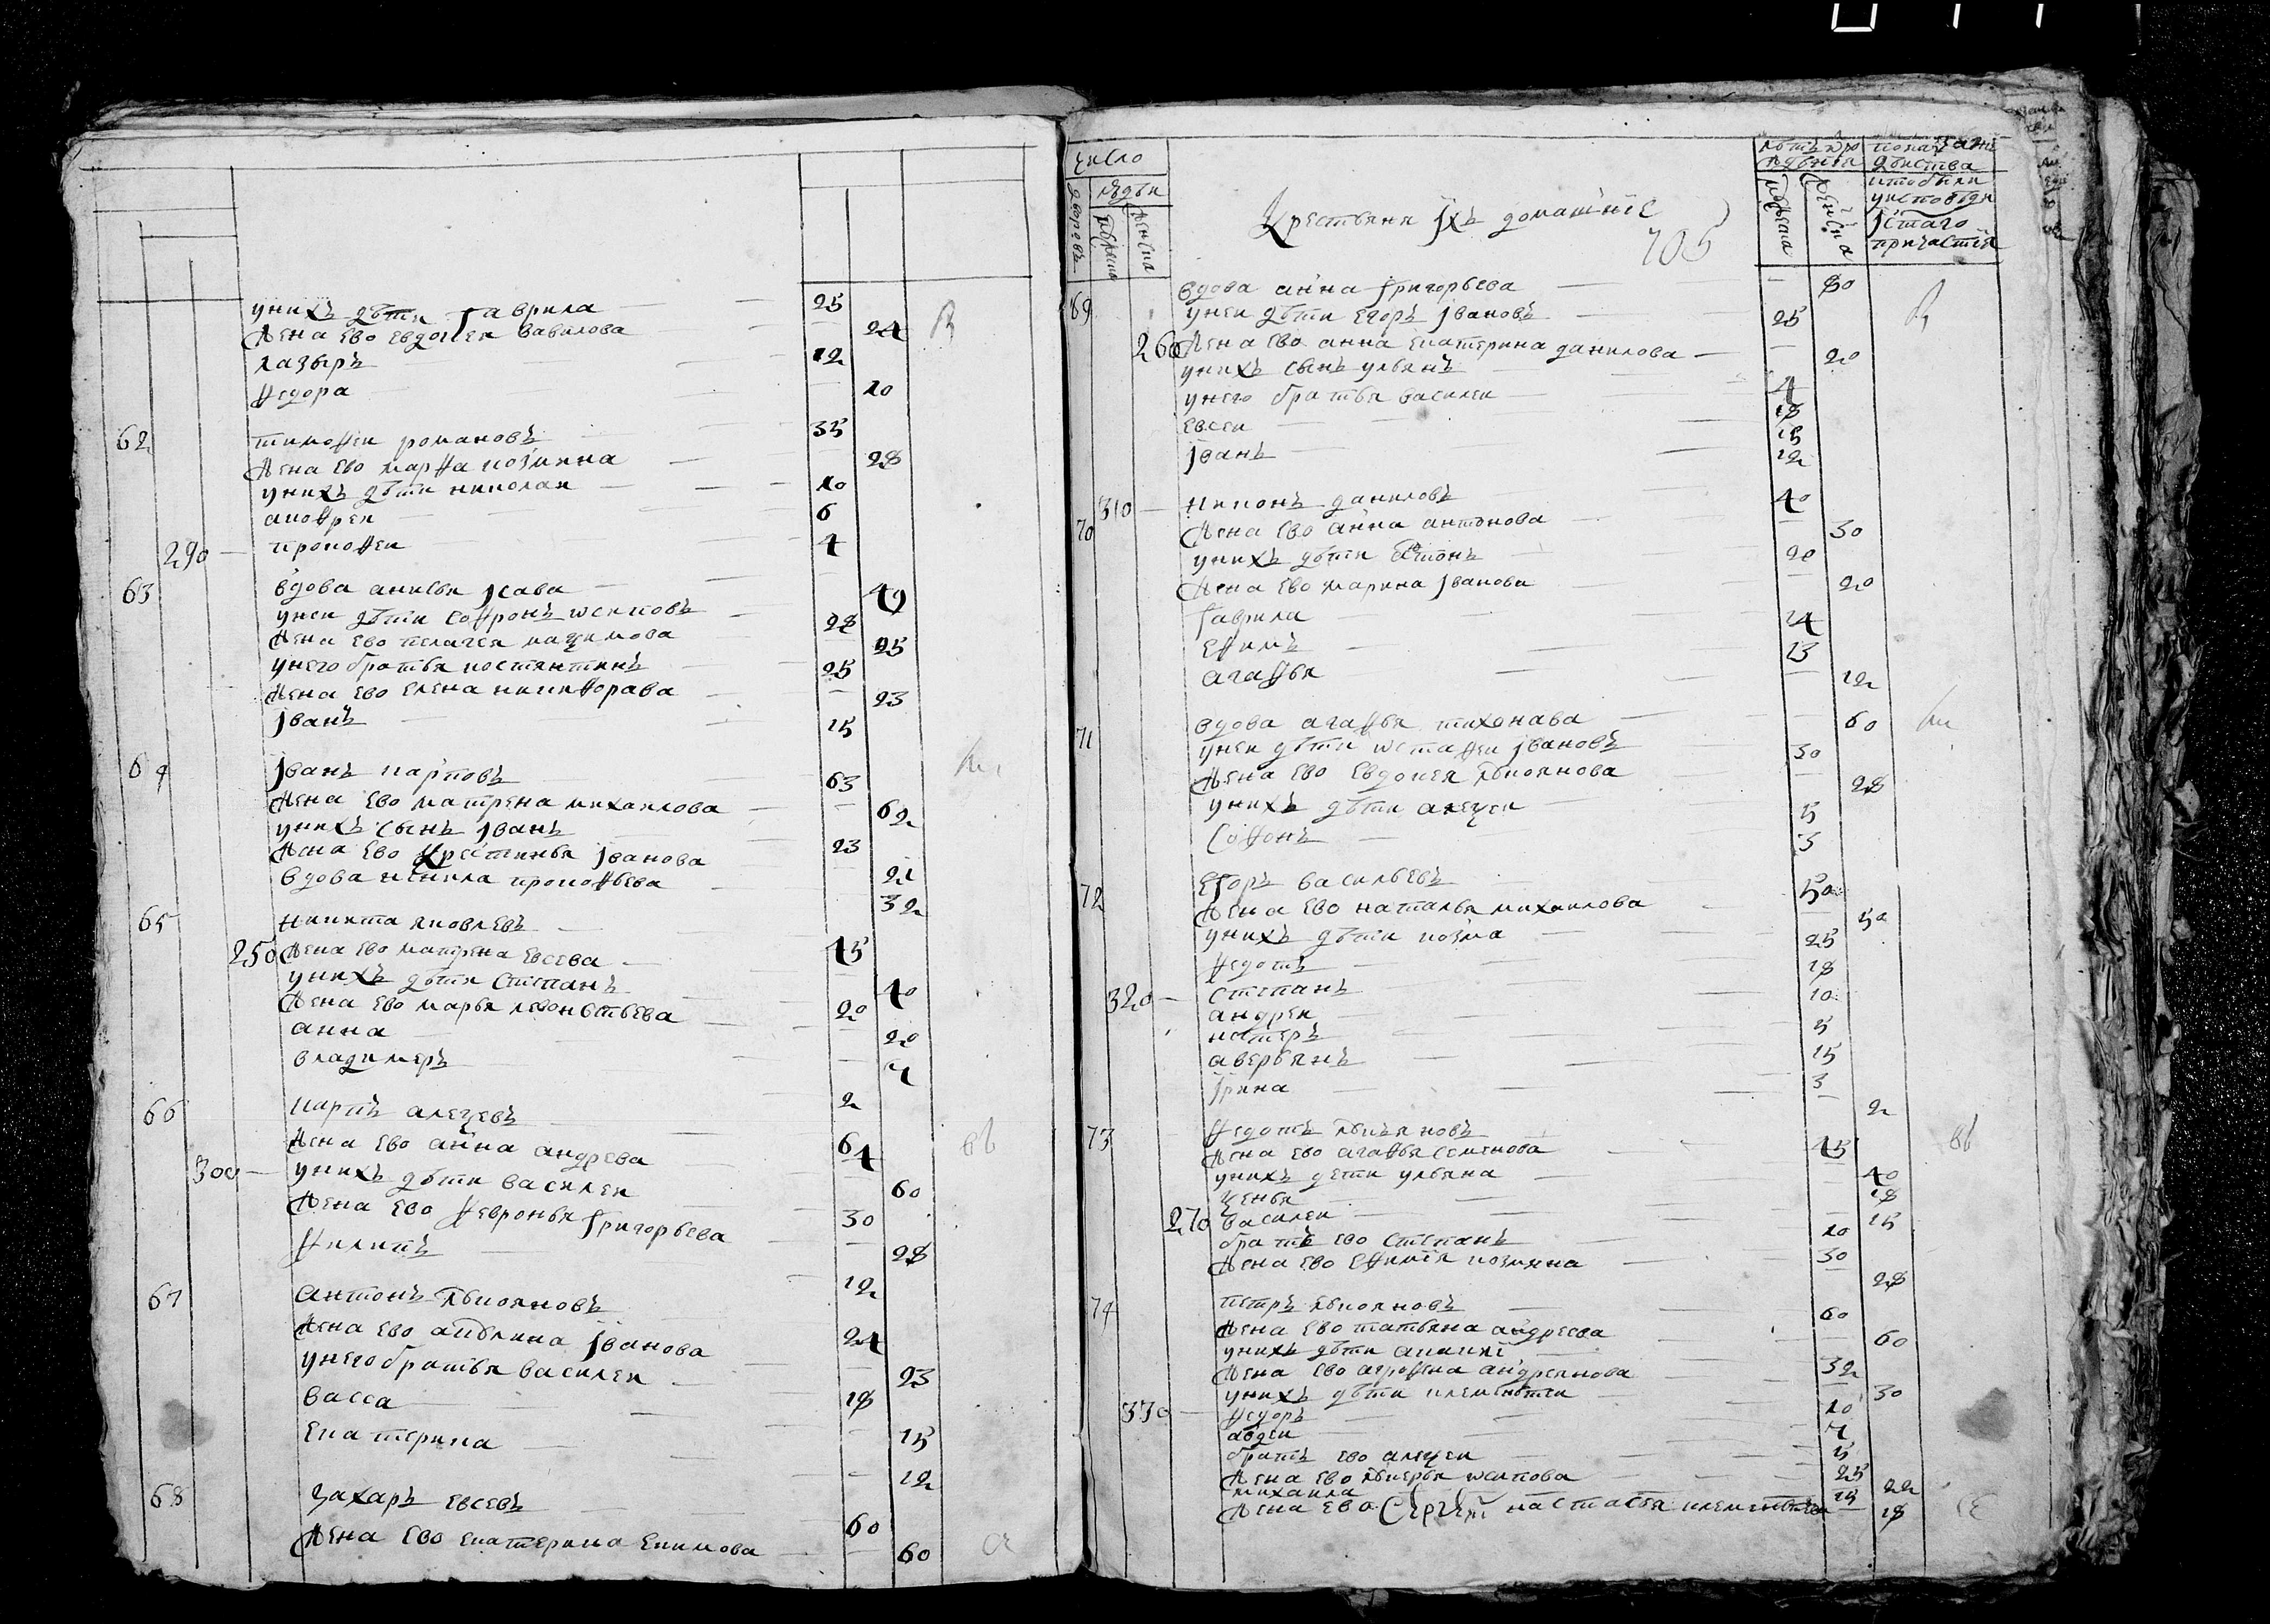 унихъ дѣти гаврила — 25
жена ево евдокея вавилова — 24
лазырь 12
федора 10
62 тимофеи романовъ 35
жена ево марфа козмина — 28
унихъ дѣти николаи — 10
анофреи — 6
290 — прокофеи — 4
63 вдова анисья исава — 40
унеи дѣти софронъ осиповъ — 28
жена ево пелагея мазимова 25
унего братья костянтинъ — 25
жена ево елена никифорава — 23
іванъ — 15
64 іванъ карповъ 63
жена ево матрена михаилова — 62
унихъ сынъ іванъ 23
жена ево крестинья іванова 21
вдова ненила прокофьева — 32
65 никита яковлевъ — 45
250 жена ево матрена евсева — 40
унихъ дѣти степанъ — 20
жена ево марья леонтьева — 20
анна —
владимеръ — 2
66 карпъ алеѯевъ 64
жена ево анна андрева 60
300 — унихъ дѣти василеи 30
жена ево февронья григорьева — 28
филипъ — 12
67 антонъ лукояновъ 24
жена ево акулина іванова 23
унего братья василеи — 18
васса — 15
екатерина — 12
68 захаръ евсевъ — 60
жена ево екатерина екимова — 60
число
дворовъ
людеи
мужеска
женска
крестьяня іхъ домашнїе
705
мужеска
женска
дѣиства
ктобыли
уисповеди
істаго
причастия
69 вдова анна григорьева — 80
унеи дѣти егоръ івановъ — 25
260 жена ево анна екатерина данилова — 20
унихъ сынъ ульянъ 4
унего братья василеи — 18
евсеи — 15
іванъ — 12
70 310 — никонъ даниловъ 40
жена ево анна антонова — 30
унихъ дѣти антонъ — 20
жена ево марина іванова — 20
гаврила — 14
ефимъ — 13
агафья — 12
71 вдова агафья тихонава — 60
унеи дѣти остафеи івановъ 30
жена ево евдокея лукоянова 28
унихъ дѣти алеѯеи — 5
софонъ — 3
72 егоръ васильевъ — 50
жена ево наталья михаилова 50
унихъ дѣти козма — 25
федотъ — 18
320 — степанъ — 10
андреи — 5
нестеръ — 15
аверьянъ — 3
ірина — 2
73 федотъ лукьяновъ 45
жена ево агафья семенова 40
унихъ дети ульяна — 18
ѯенья — 15
270 василеи — 10
братъ ево степанъ — 30
жена ево ефимїя козмина — 28
74 петръ лукояновъ — 60
жена ево татьяна андреева 60
унихъ дѣти ананиї — 32
жена ево агрофена андреянова — 30
унихъ дѣти клементеи — 10
330 — федоръ —
авдеи — 5
братъ ево алеѯеи 25
жена ево лукерья осипова 22
михаила — 19
жена ево сергеи настасея клементьева 18